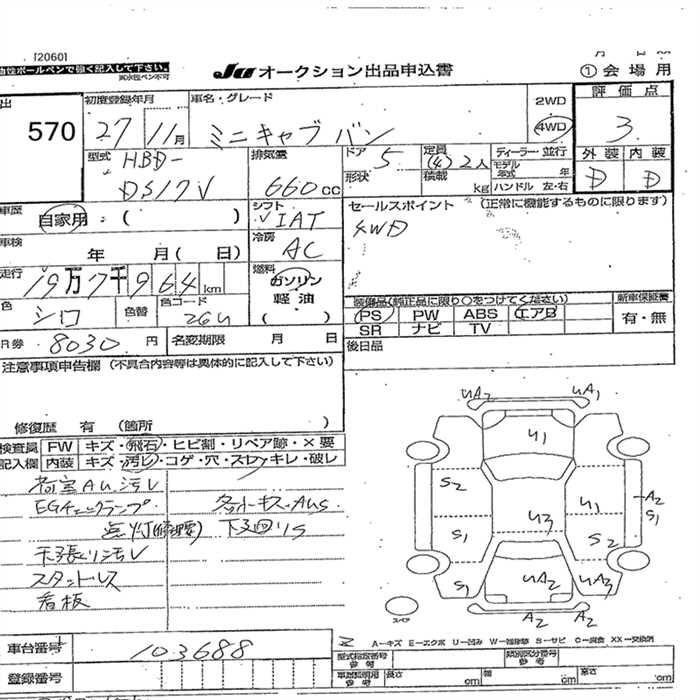 [2060]
ボールペンで強く記入して下さい。
Ju オークション出品申込書
①会場用
570
初度登録年月
27年11月
車名・グレード
ミニキャブバン
2WD
4WD
評価点
3
外装 内装
D D
型式
HBD-
DS17V
排気量
660cc
ドア
5
形状
定員
(4)2人
積載
kg
ディーラー・並行
モデル
年式 年
ハンドル 左・右
車歴
自家用・( )
シフト
IAT
セールスポイント (正常に機能するものに限ります)
4WD
車検
年 月( 日)
冷房
AC
走行
19万7千964km
燃料
ガソリン
軽油
( )
色
シロ
色替
色コード
26U
装備品(純正品に限り○をつけてください)
新車保証書
PS PW ABS エアB
SR ナビ TV
有・無
R券
8030円
名変期限 月 日
後日品
注意事項申告欄 (不具合内容等は具体的に記入して下さい)
修復歴 有 (箇所 )
検査員
記入欄
FW キズ・飛石・ヒビ割・リペア跡・×要
内装 キズ・汚レ・コゲ・穴・スレ・キレ・破レ
荷室AU.汚レ
EGチェックランプ
点灯(修理要)
下回りS
天張り汚レ
スタッドレス
看板
UA2 UA1
U1
S2
U1
A2
S1
S1
U3
S2
S1
UA2
UA3
A2 A2
スペア
A─キズ E─エクボ U─凹み W─補修跡 S─サビ C─腐食 XX─交換済
車台番号
103688
型式指定番号
参考
類別区分番号
参考
登録番号
長さ cm 幅 cm 高さ cm